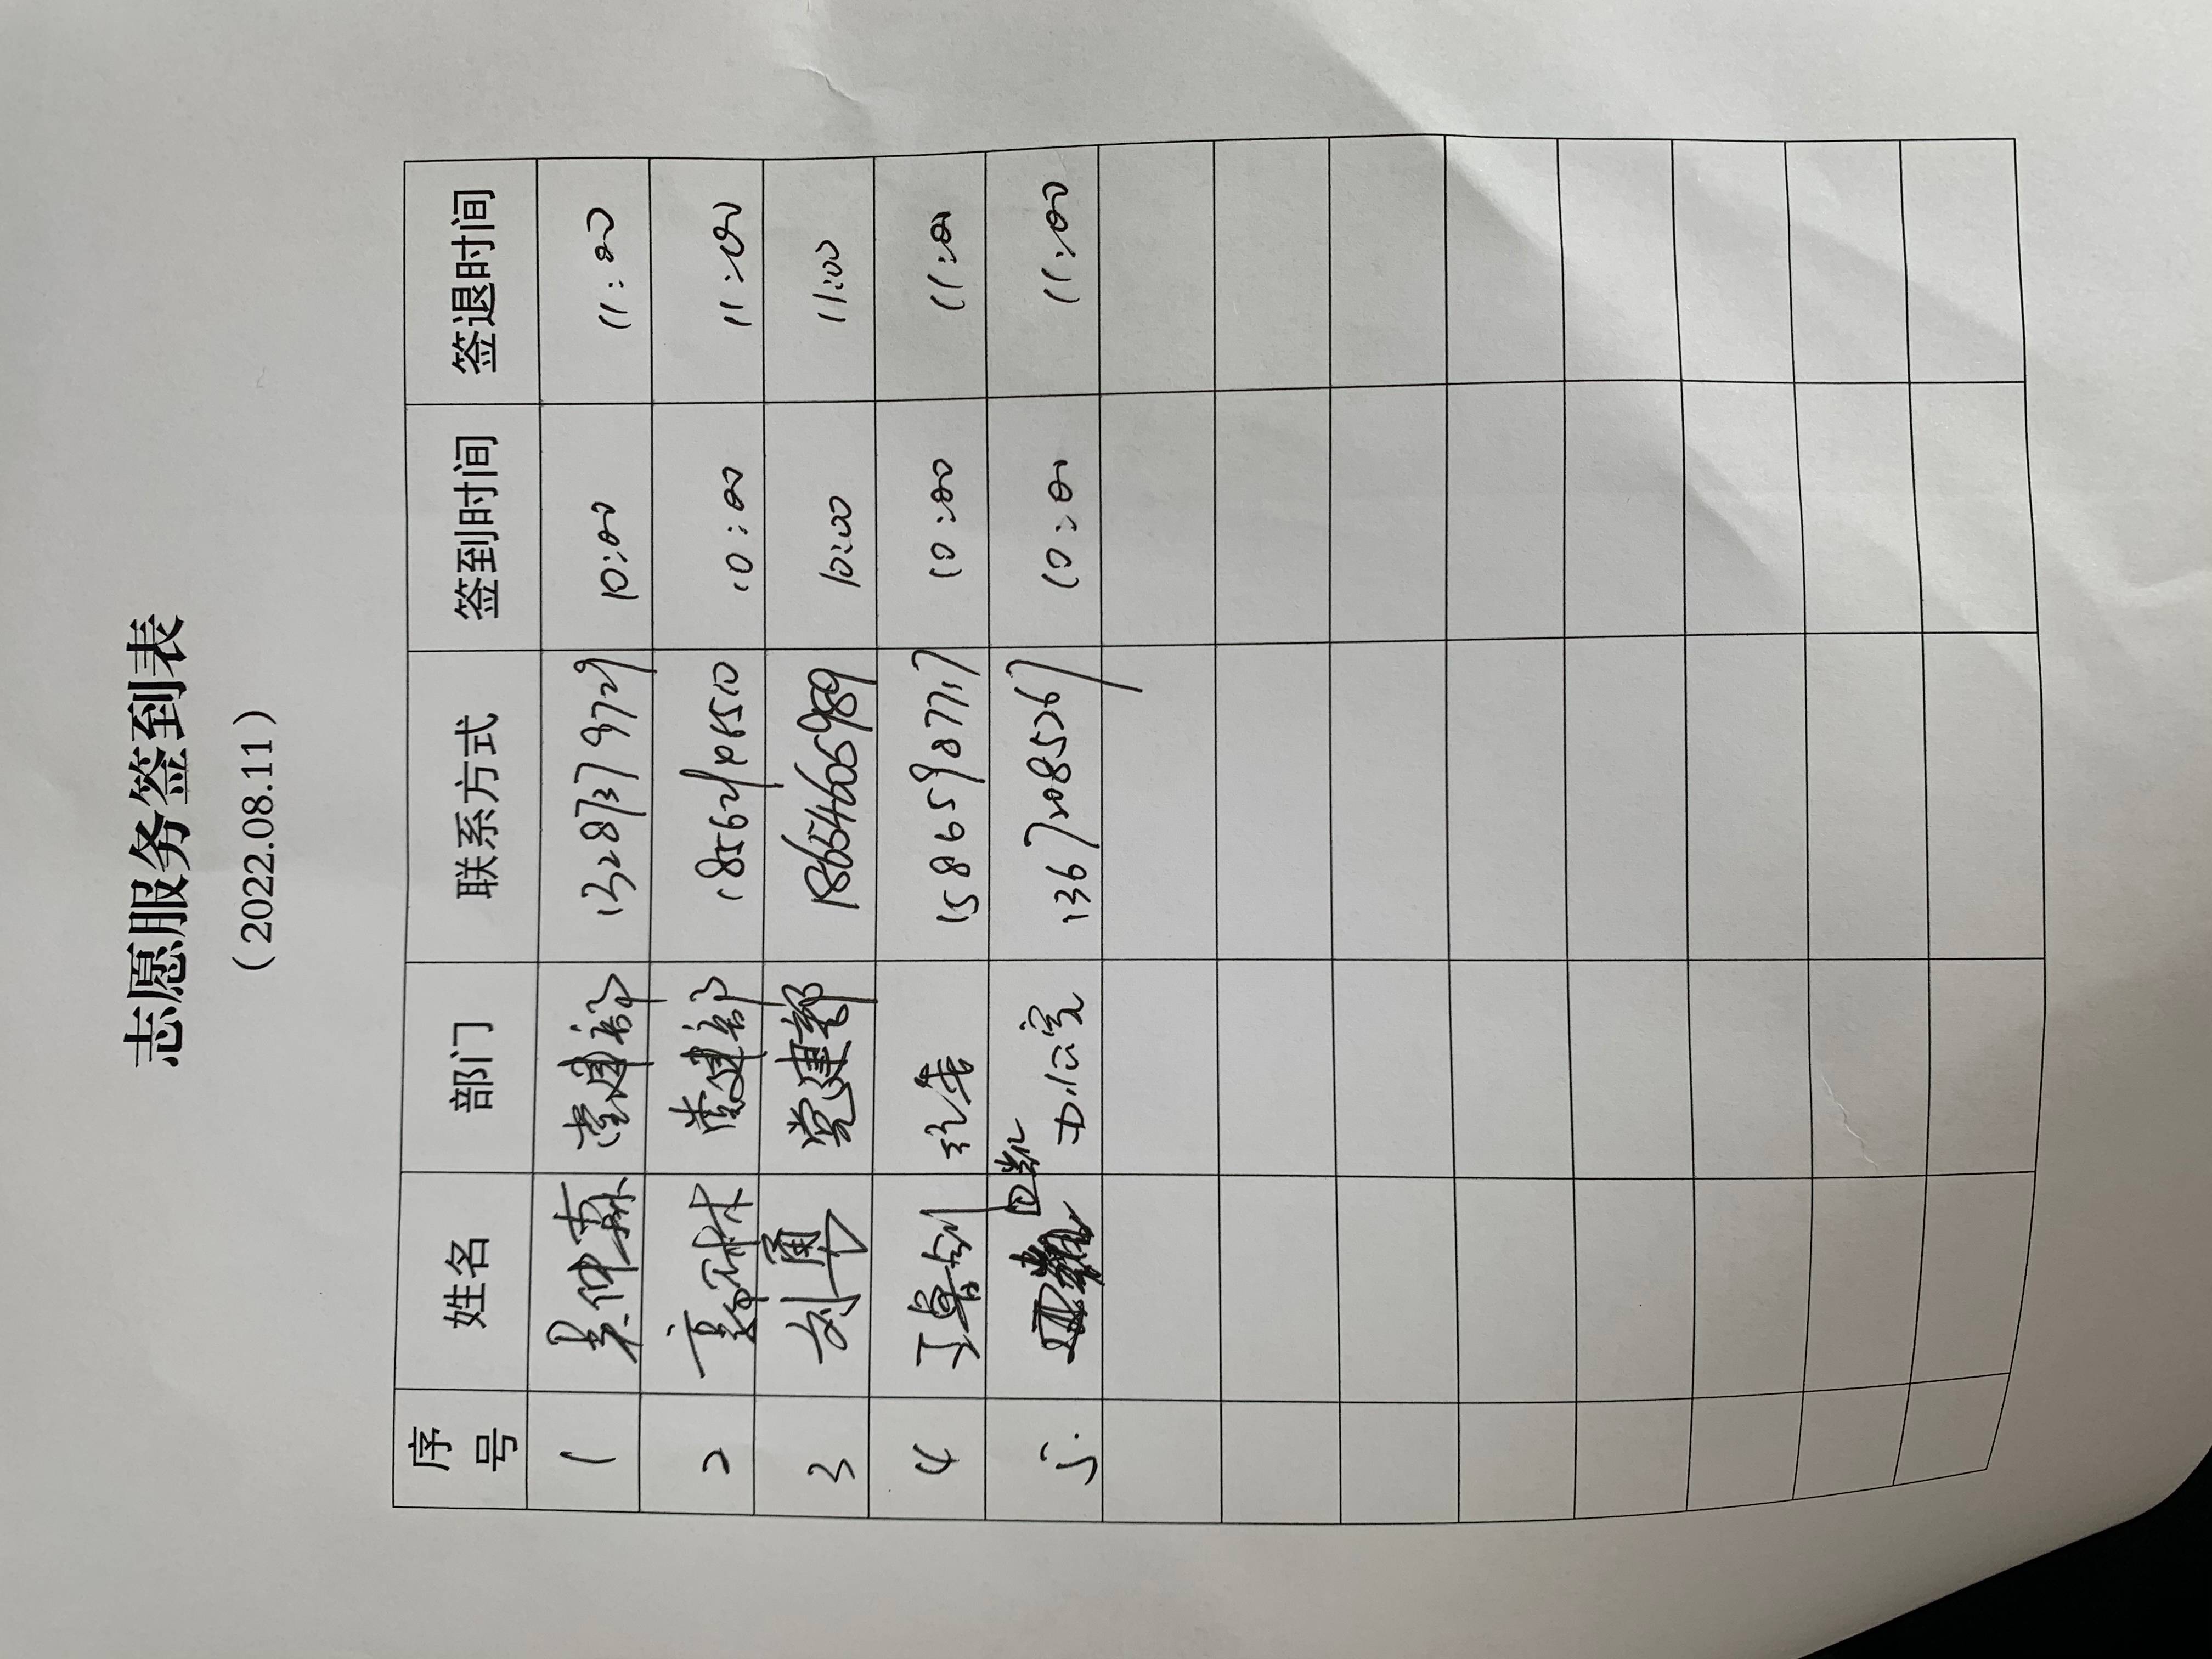 志愿服务签到表
（2022.08.11）
序号 姓名 部门 联系方式 签到时间 签退时间
1 吴仲森 党建部 13287379729 10:00 11:00
2 党建部 10:00 11:00
3 刘勇 党建部 18654605989 10:00 11:00
4 丁鲁刚 纪委 15865987717 10:00 11:00
5. 田凯 办公室 13672085267 10:00 11:00